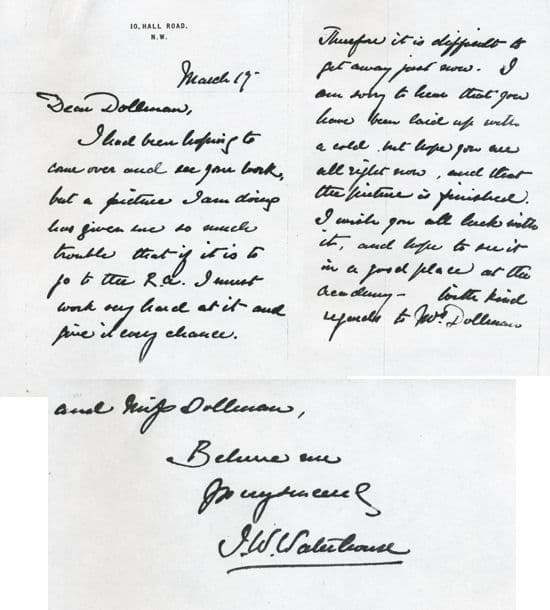 10, HALL ROAD.
N.W.
March 19
Dear Dollman,
I had been hoping to
come over and see your work,
but a picture I am doing
has given me so much
trouble that if it is to
go to the R.A. I must
work very hard at it and
give it every chance.
Therefore it is difficult to
get away just now. I
am sorry to hear that you
have been laid up with
a cold, but hope you are
all right now, and that
the picture is finished.
I wish you all luck with
it, and hope to see it
in a good place at the
Academy – With kind
regards to Mrs Dollman
and Miss Dollman,
Believe me
Yrs very sincerely
J.W. Waterhouse